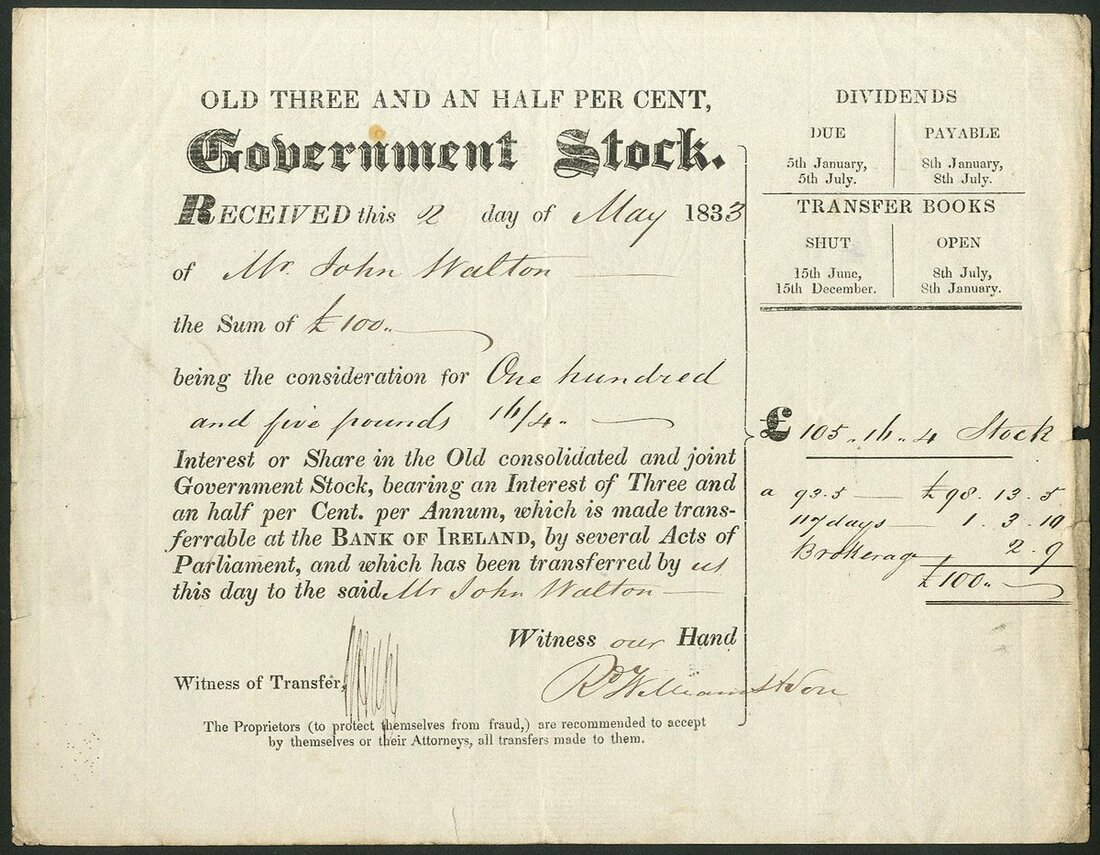 OLD THREE AND AN HALF PER CENT,
Government Stock.
RECEIVED this 2 day of May 1833
of Mr. John Walton
the Sum of £100..
being the consideration for One hundred
and five pounds 16/4..
Interest or Share in the Old consolidated and joint
Government Stock, bearing an Interest of Three and
an half per Cent. per Annum, which is made trans-
ferrable at the BANK OF IRELAND, by several Acts of
Parliament, and which has been transferred by us
this day to the said Mr John Walton
Witness our Hand
Rd Williams & Son
Witness of Transfer,
The Proprietors (to protect themselves from fraud,) are recommended to accept
by themselves or their Attorneys, all transfers made to them.
DIVIDENDS
DUE PAYABLE
5th January, 8th January,
5th July. 8th July.
TRANSFER BOOKS
SHUT OPEN
15th June, 8th July,
15th December. 8th January.
£ 105..16..4 Stock
a 93.5 £98.13.5
117 days 1.3.10
Brokerage 2.9
£100..